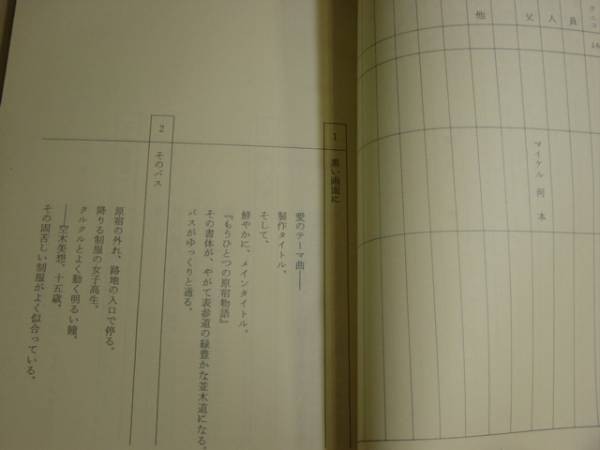 員
人
父
他
マイケル 岡本
1
黒い画面に
愛のテーマ曲――
製作タイトル、
そして、
鮮やかに、メインタイトル。
『もうひとつの原宿物語』
その書体が、やがて表参道の緑豊かな並木道になる。
バスがゆっくりと通る。
2
そのバス
原宿の外れ、路地の入口で停る。
降りる制服の女子高生。
クルクルとよく動く明るい瞳。
――空木美想、十五歳。
その固苦しい制服がよく似合っている。